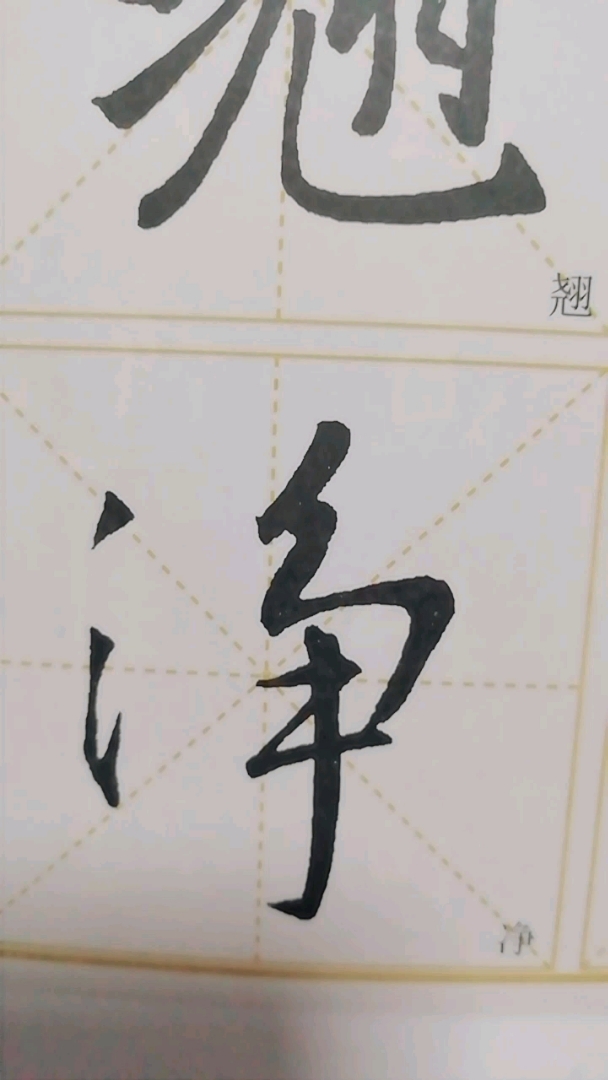 翘
翘
净
净